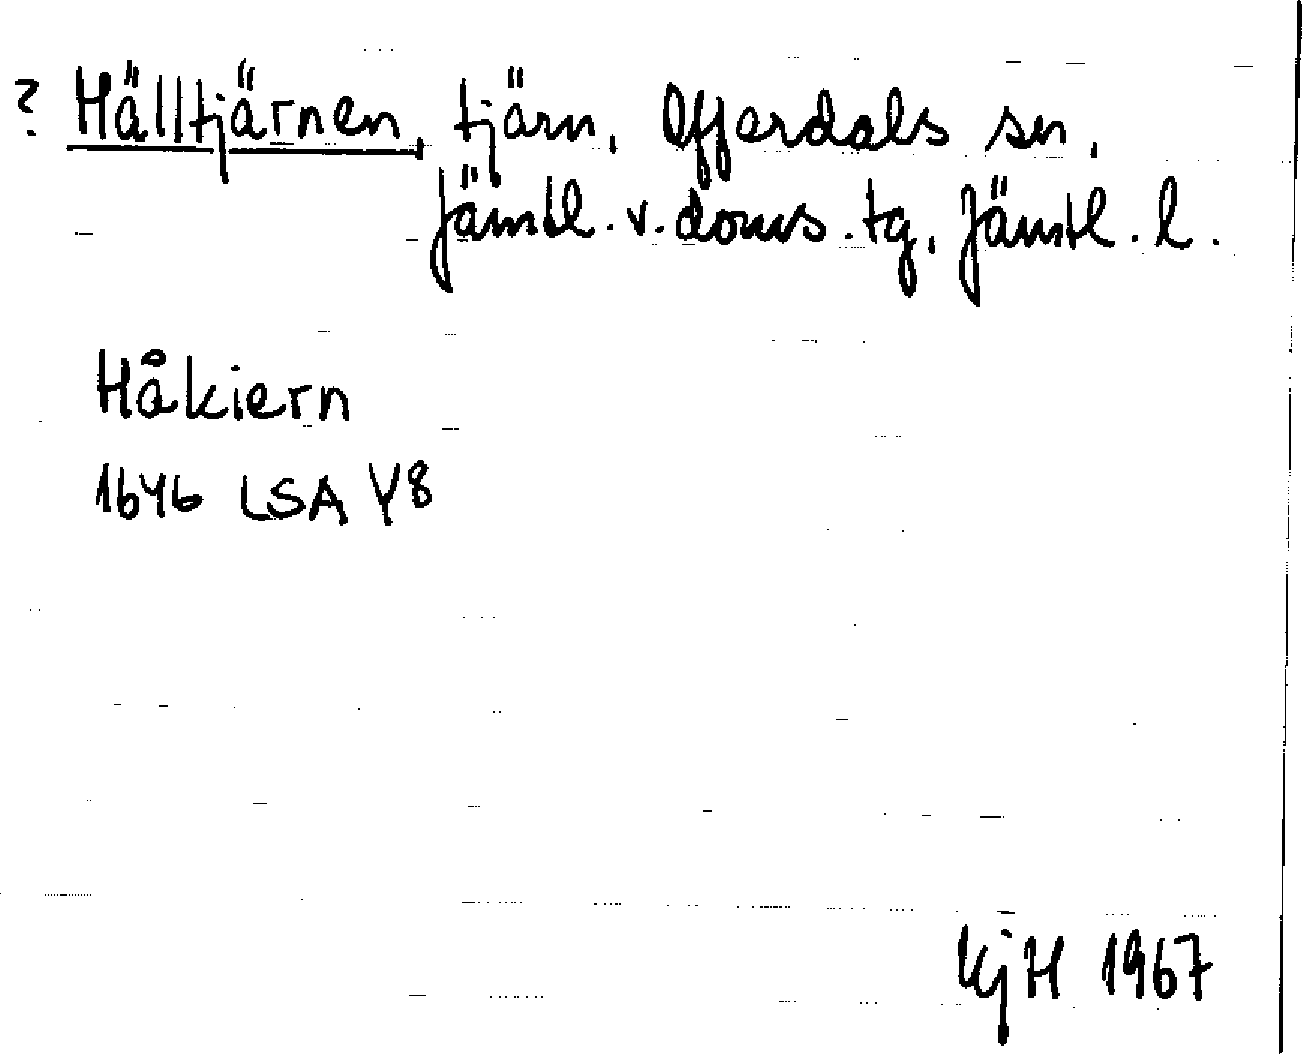 ? Hälltjärnen, tjärn, Offerdals sn,
Jämtl. v. doms. tg, Jämtl. l.
Håkiern
1646 LSA Y8
KjH 1967